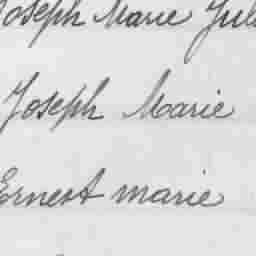 Joseph Marie Jul
Joseph Marie
Ernest marie